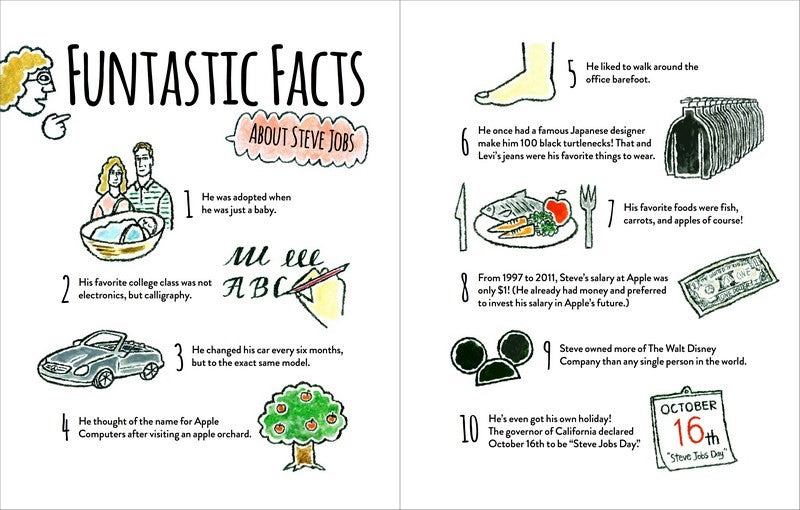 FUNTASTIC FACTS
ABOUT STEVE JOBS
1 He was adopted when
he was just a baby.
2 His favorite college class was not
electronics, but calligraphy.
ABC
3 He changed his car every six months,
but to the exact same model.
4 He thought of the name for Apple
Computers after visiting an apple orchard.
5 He liked to walk around the
office barefoot.
6 He once had a famous Japanese designer
make him 100 black turtlenecks! That and
Levi's jeans were his favorite things to wear.
7 His favorite foods were fish,
carrots, and apples of course!
8 From 1997 to 2011, Steve's salary at Apple was
only $1! (He already had money and preferred
to invest his salary in Apple's future.)
ONE
9 Steve owned more of The Walt Disney
Company than any single person in the world.
10 He's even got his own holiday!
The governor of California declared
October 16th to be “Steve Jobs Day.”
OCTOBER
16th
"Steve Jobs Day"